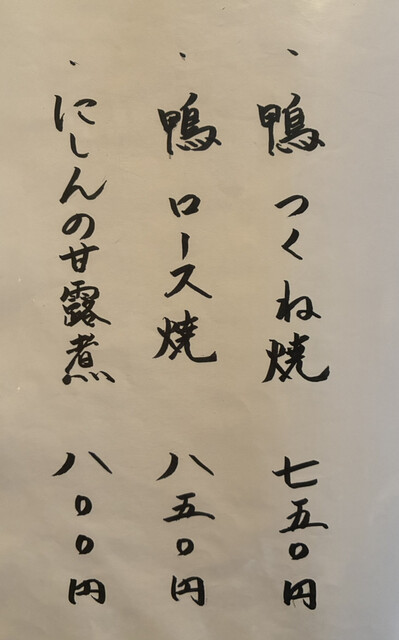 ・鴨つくね焼 七五〇円
・鴨ロース焼 八五〇円
・にしんの甘露煮 八〇〇円